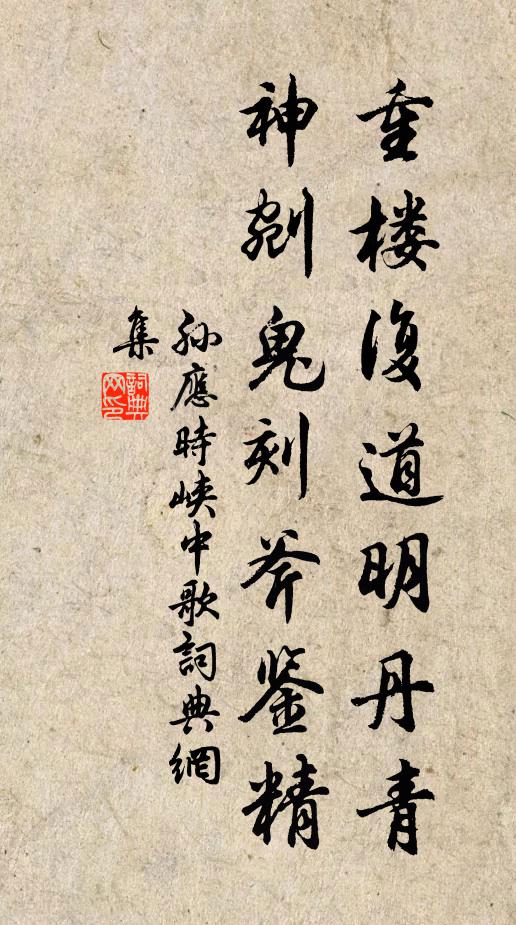 重楼復道明丹青
神剜鬼刻斧鉴精
孙應時峡中歌詞典網
集
詞典
网印